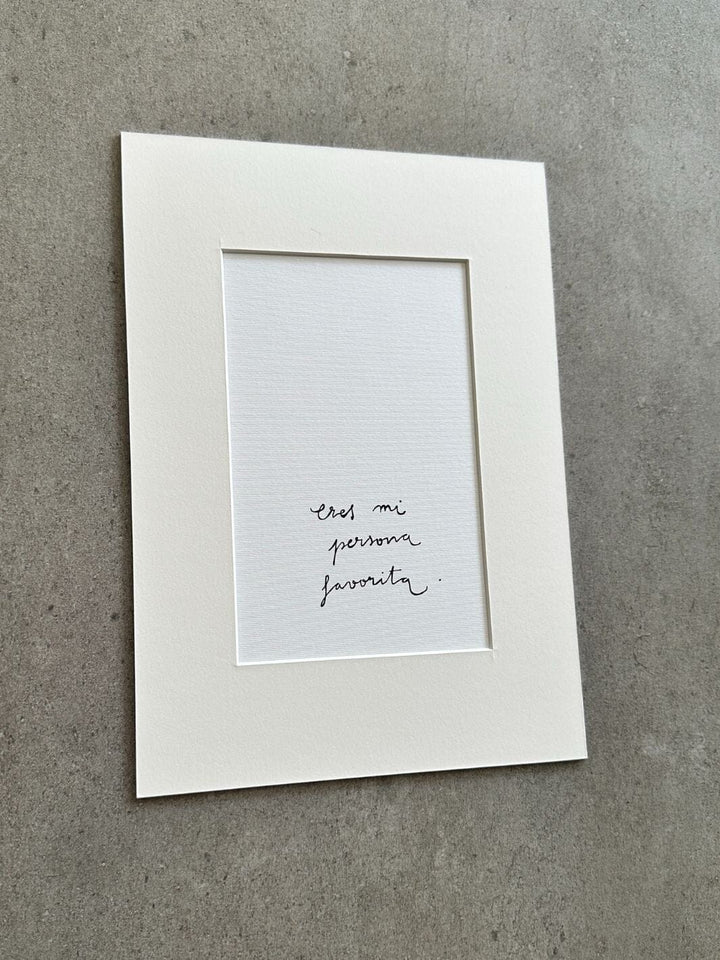 eres mi
persona
favorita.